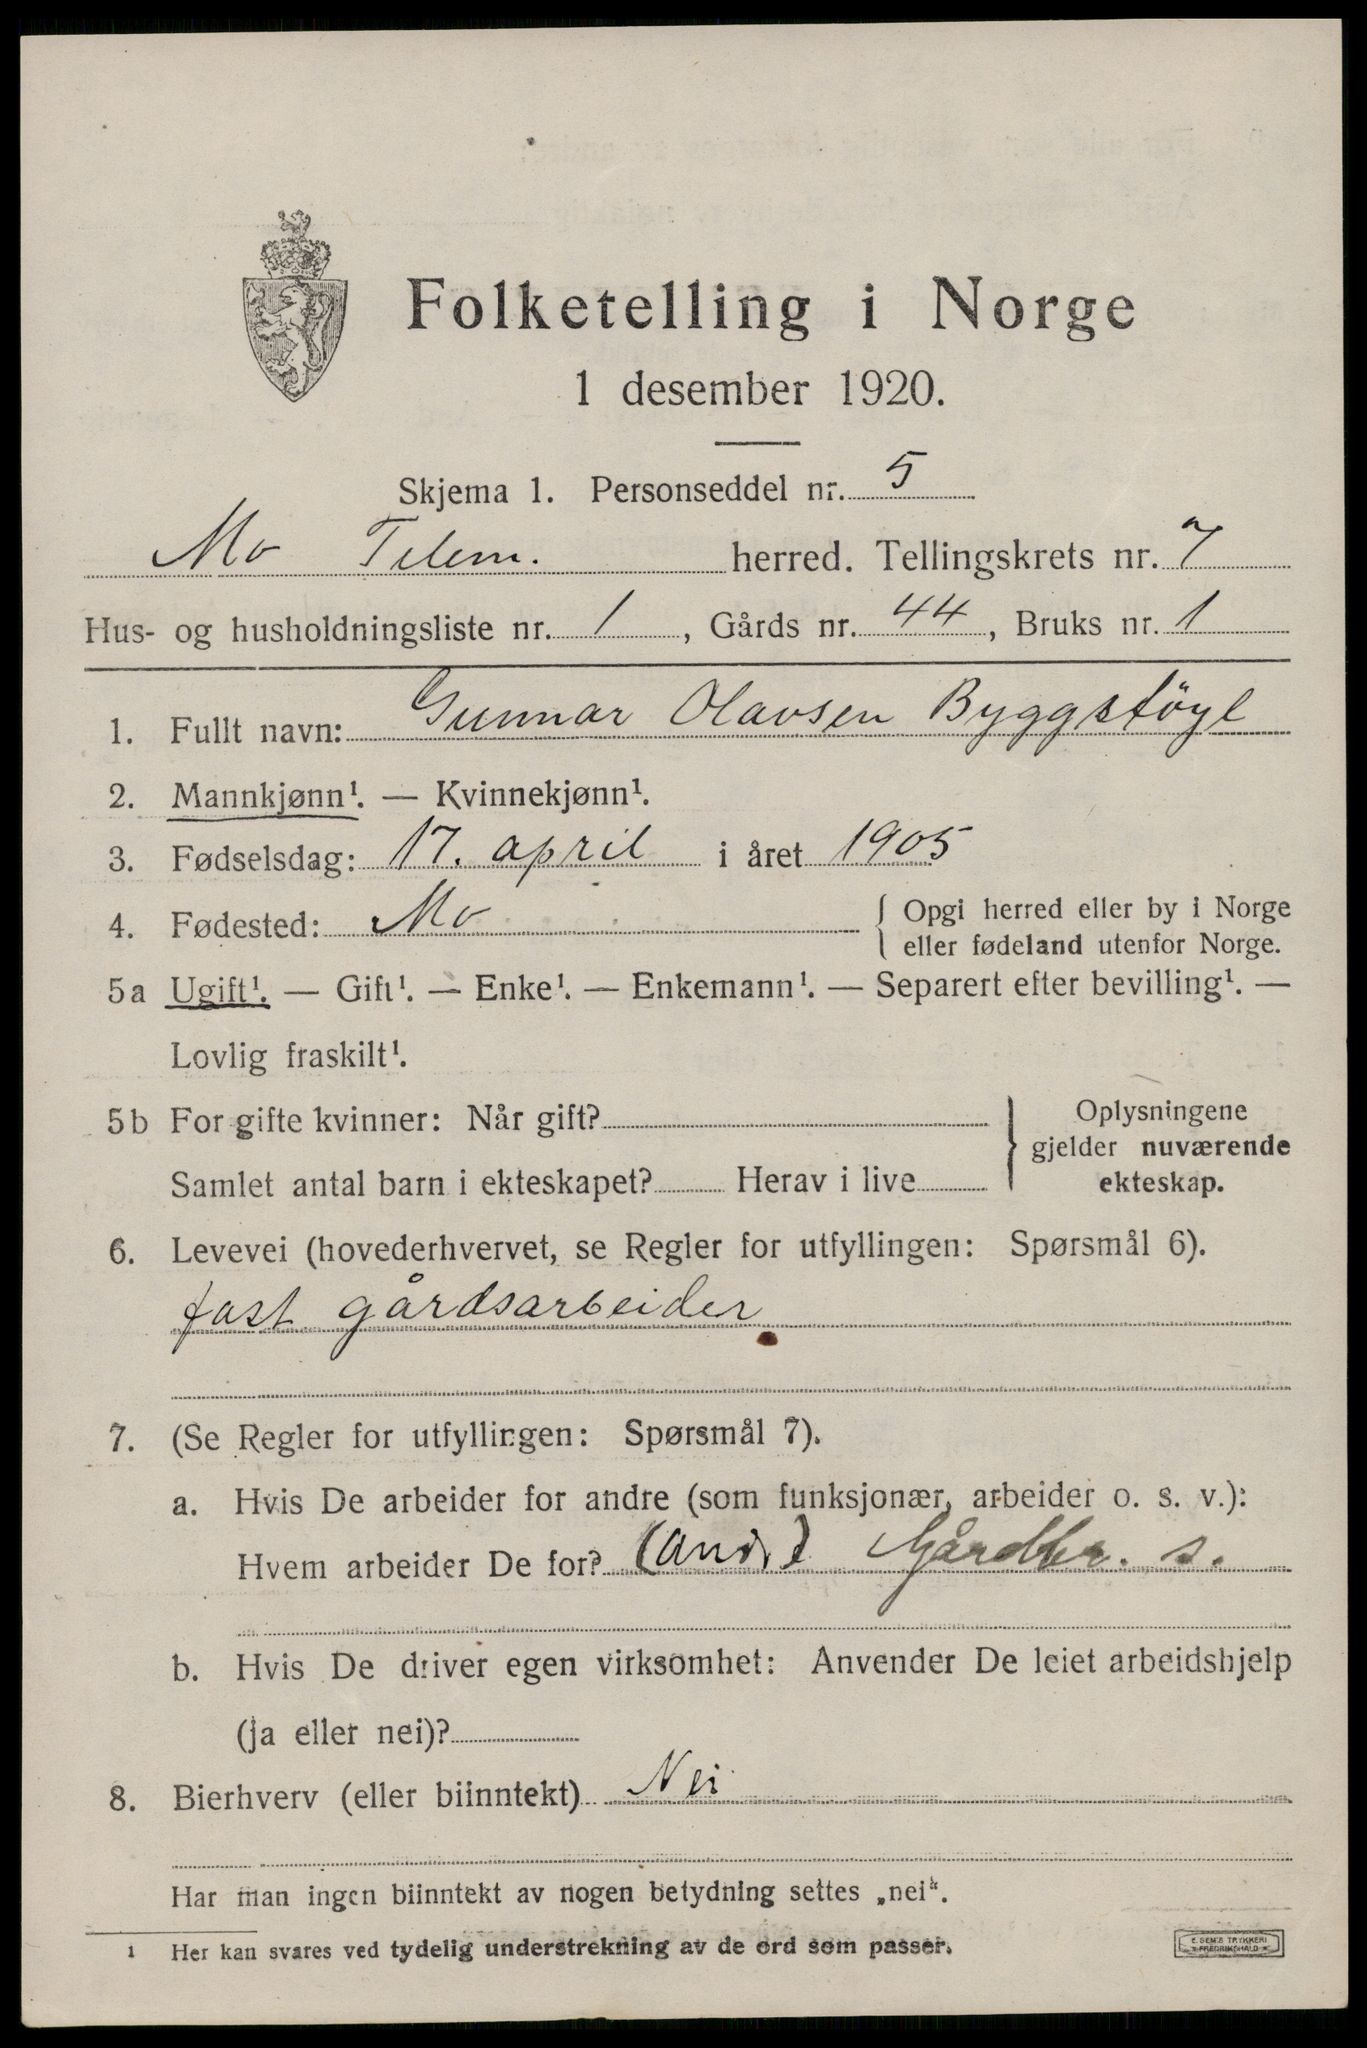 Folketelling i Norge
1 desember 1920.
Skjema 1. Personseddel nr. 5
Mo Telem. herred. Tellingskrets nr. 7
Hus- og husholdningsliste nr. 1, Gårds nr. 44, Bruks nr. 1
1. Fullt navn: Gunnar Olavsen Byggstöyl
2. Mannkjønn¹. — Kvinnekjønn¹.
3. Fødselsdag: 17. april i året 1905
4. Fødested: Mo { Opgi herred eller by i Norge
eller fødeland utenfor Norge.
5a Ugift¹. — Gift¹. — Enke¹. — Enkemann¹. — Separert efter bevilling¹. —
Lovlig fraskilt¹.
5b For gifte kvinner: Når gift?
Samlet antal barn i ekteskapet? Herav i live
} Oplysningene
gjelder nuværende
ekteskap.
6. Levevei (hovederhvervet, se Regler for utfyllingen: Spørsmål 6).
fast gårdsarbeider
7. (Se Regler for utfyllingen: Spørsmål 7).
a. Hvis De arbeider for andre (som funksjonær, arbeider o. s. v.):
Hvem arbeider De for? Gårdbr. s.
b. Hvis De driver egen virksomhet: Anvender De leiet arbeidshjelp
(ja eller nei)?
8. Bierhverv (eller biinntekt) Nei
Har man ingen biinntekt av nogen betydning settes „nei“.
1 Her kan svares ved tydelig understrekning av de ord som passer.
E. SEM'S TRYKKERI
FREDRIKSHALD